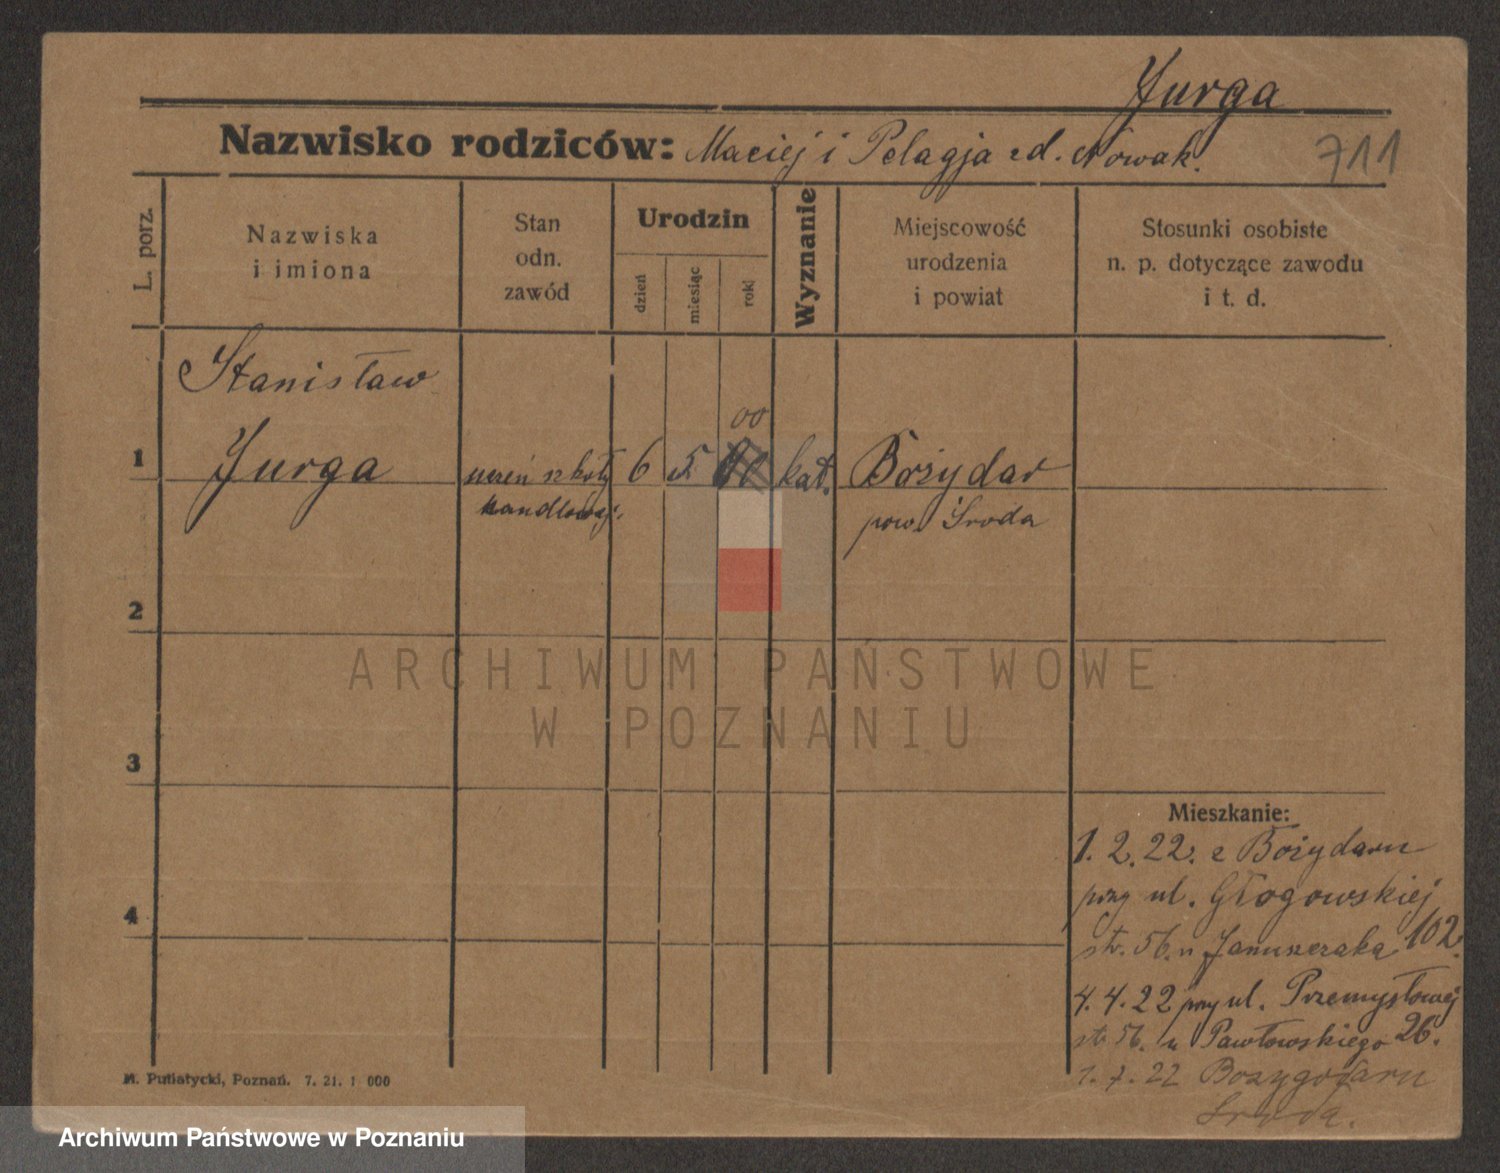 Jurga
Nazwisko rodziców: Maciej i Pelagja zd. Nowak.
711
L. porz.
Nazwiska
i imiona
Stan
odn.
zawód
Urodzin
dzień
miesiąc
rok
Wyznanie
Miejscowość
urodzenia
i powiat
Stosunki osobiste
n. p. dotyczące zawodu
i t. d.
Stanisław
00
1 Jurga uczeń szkoły 6 5 kat. Bożydar
handlowej. pow. Środa
2
ARCHIWUM PAŃSTWOWE
W POZNANIU
3
Mieszkanie:
1. 2. 22. z Bożydaru
przy ul. Głogowskiej
4
str. 56. u Januszczaka 102.
4. 4. 22 przy ul. Przemysłowej
str. 56. u Pawłowskiego 26.
1. 7. 22
Środa.
M. Putiatycki, Poznań. 7. 21. 1 000
Archiwum Państwowe w Poznaniu